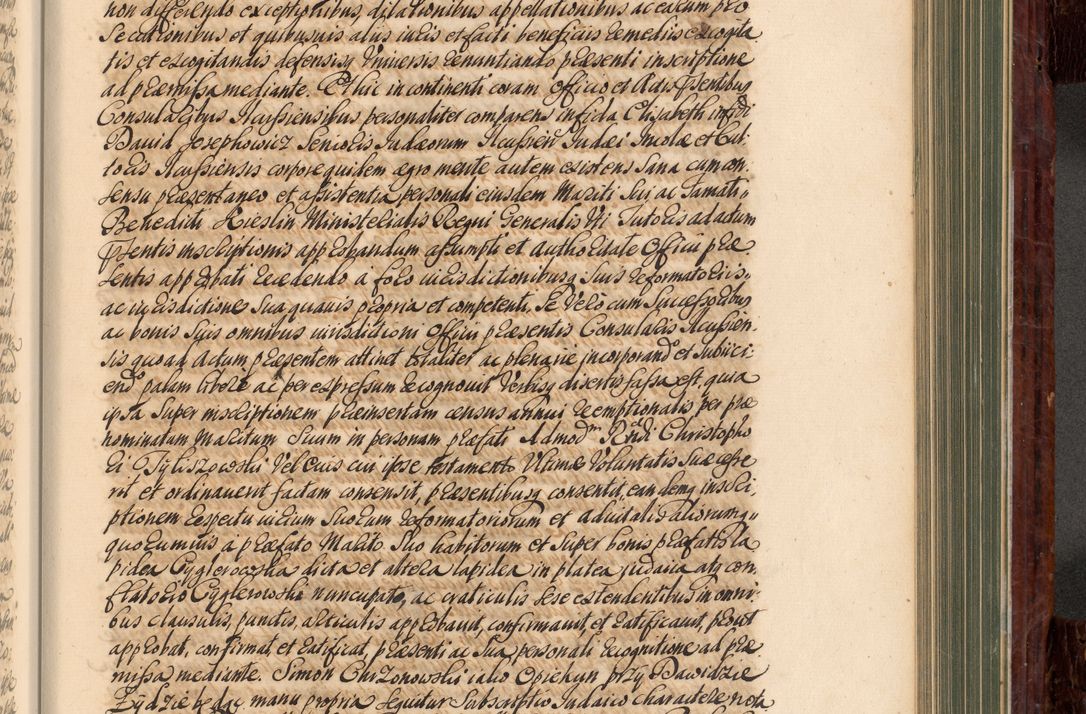 non differendo exceptionibus, dilationibus appellationibus ac earum pro
secutionibus et quibusvis aliis iuris et facti beneficiis remediis excogita
tis et excogitandis defensisq Universis renuntiando praesenti inscriptione
ad praemissa mediante. Et hic in continenti coram Officio et Actis Psentibus
Consularibus Ilcussiensibus personaliter comparens infida Elisabeth infidi
Dawid Josephowicz Senioris Iudaeorum Ilcussien Iudaei Incolae et Cul
toris Ilcussiensis corpore quidem aegro mente autem existens sana cum con
sensu praesentaneo et assistentia personali eiusdem Mariti sui ac Famati
Benedicti Kieslin Ministerialis Regni Generalis Uti Tutoris ad actum
Psentis inscriptionis approbandum assumpti et authoritate Officii prae
sentis approbati recedendo a foro iurisdictionibusq suis reformatoriis
ac iurisdictione sua quavis propria et competenti, se vero cum successoribus
ac bonis suis omnibus iurisdictioni Officii praesentis Consularis Ilcussien
sis quoad Actum praesentem attinet totaliter ac plenarie incorporand et subiici
end palam libere ac per expressum recognovit Verbisq disertis fassa est, quia
ipsa super inscriptionem praeinsertam census annui reemptionalis per prae
nominatum Maritum suum in personam praefati Admod Rndi Christopho
ri Tyliszowski vel cuis cui ipse testamento Ultimae Voluntatis suae cesse
rit et ordinaverit factam consensit, praesentibusq consentit, eandemq inscri
ptionem respectu iurium suorum reformatoriorum et advitalis aliorumq
quorumvis a praefato Marito suo habitorum et super bonis praefatis la
pidea Cyglerowska dicta et altera lapidea in platea judaica atq con
flatorio Cyglerowskie nuncupato, ac craticulis sese extendentibus in omni
bus clausulis, punctis, articulis approbavit, confirmavit, et ratificavit, prout
approbat, confirmat, et ratificat, praesenti ac sua personali recognitione ad prae
missa mediante. Simon Chrzonowski iako Opiekun przy Dawidzie
Zydzie będąc manu propria sequitur subscriptio Iudaico charactere nota